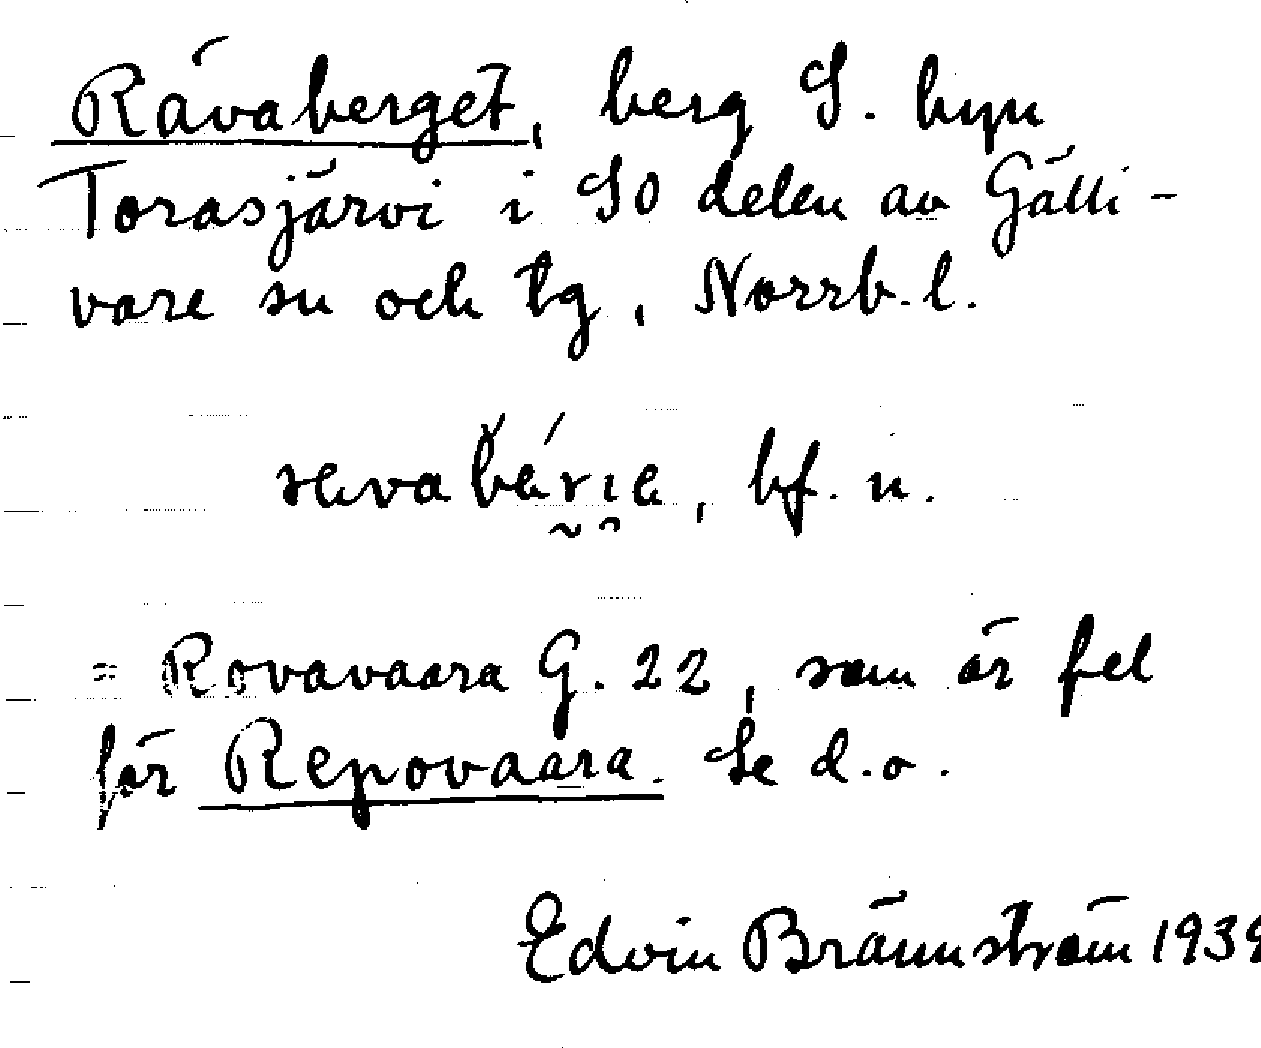 Rävaberget, berg S. byn
Torasjärvi i SO delen av Gälli-
vare sn och tg, Norrb. l.
bf. n.
= Rovavaara G. 22, som är fel
för Repovaara. Se d. o.
Edvin Brännström 1939